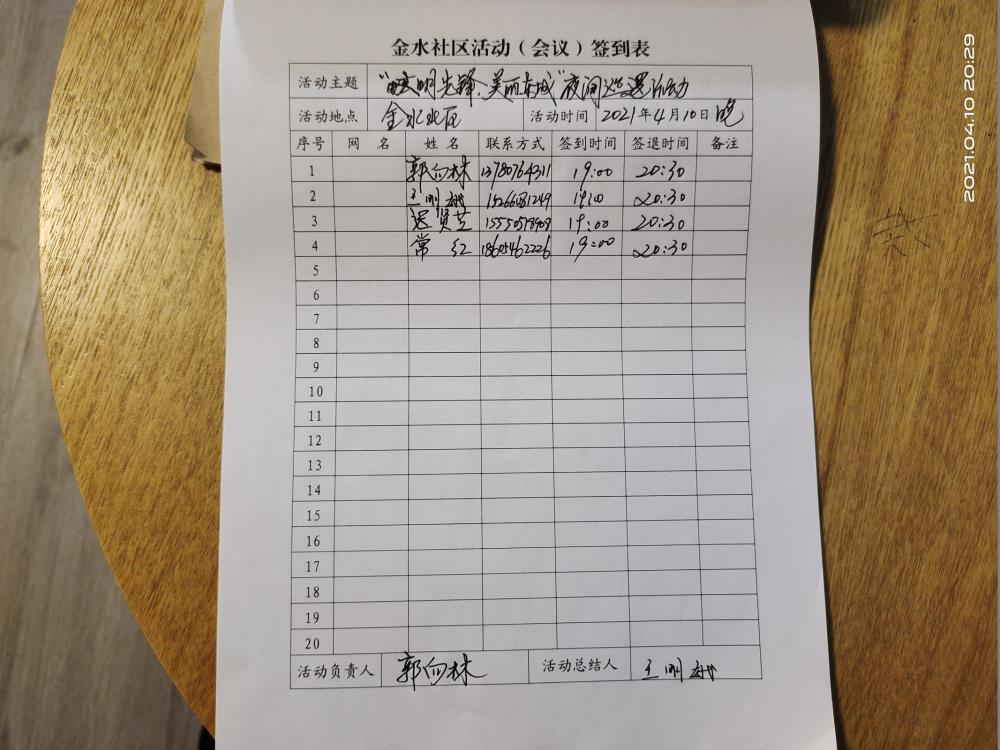 金水社区活动（会议）签到表
活动主题 文明先锋、美丽东城"夜间巡逻活动
活动地点 金水社区 活动时间 2021年4月10日晚
序号 网 名 姓 名 联系方式 签到时间 签退时间 备注
1 郭向林 13780764311 19:00 20:30
2 王明 15266081249 19:00 20:30
3 贤芝 19:00 20:30
4 常 红 18605462226 19:00 20:30
5
6
7
8
9
10
11
12
13
14
15
16
17
18
19
20
活动负责人 郭向林 活动总结人 王明
2021.04.10 20:29